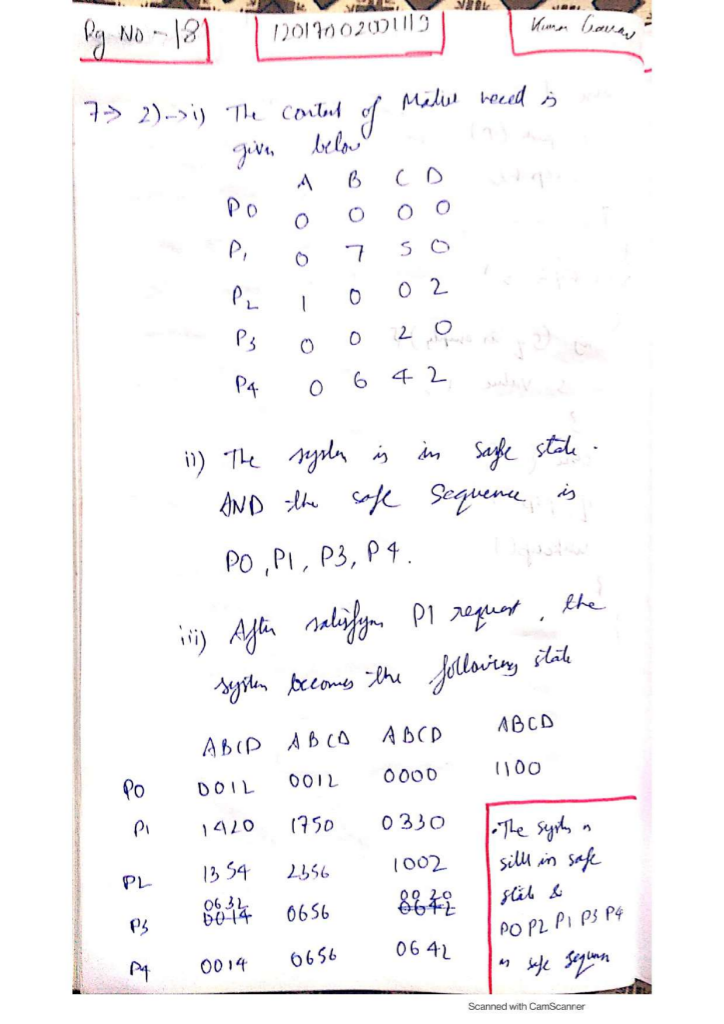 Pg No - 18
12017002001119
Kumar Gaurav
7⇒ 2)→i) The content of Matrix need is
given below
A B C D
P0 0 0 0 0
P1 0 7 5 0
P2 1 0 0 2
P3 0 0 2 0
P4 0 6 4 2
ii) The system is in safe state.
AND the safe sequence is
P0, P1, P3, P4.
iii) After satisfyn P1 request, the
system becomes the following state
ABCD ABCD ABCD ABCD
P0 0012 0012 0000 1100
P1 1420 1750 0330
P2 1354 2356 1002
P3 0632 0014 0656 0020 0642
P4 0014 0656 0642
• The syst n
still in safe
state &
P0 P2 P1 P3 P4
is safe sequen
Scanned with CamScanner